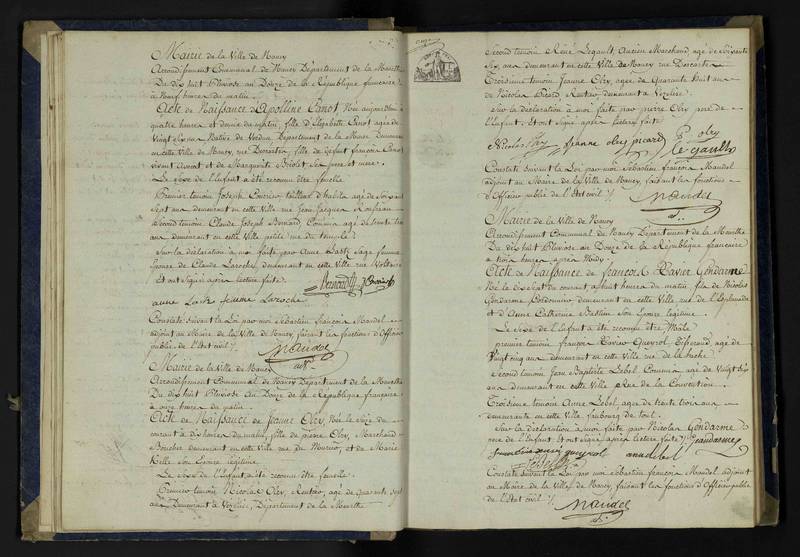 Mairie de la Ville de Nancy
Arrondissement Communal de Nancy Département de la Meurthe
Du dix huit Pluviose au Douze de la République française
à neuf heures du matin.
Acte de Naissance d'Apolline Canot Née aujourd'hui à
quatre heures et demie du matin, fille d'Elizabeth Canot agée de
Vingt Native de Verdun Département de la Meuse demeurant
en cette Ville de Nancy, rue Descartes, fille de défunt françois Canot
vivant Avocat et de Marguerite ses pere et mere.
Le sexe de l'Enfant a été reconnu être femelle
Premier temoin Joseph tailleur d'habits agé de Soixante
Sept ans demeurant en cette Ville rue Jean Jacques Rousseau
Second temoin Claude Joseph Bernard, Commis agé de trente
ans demeurant en cette Ville petite rue du
Sur la déclaration à moi faite par Anne Sage femme
épouse de Claude Laroche, demeurant en cette Ville rue Voltaire
Et ont signé après lecture faite.
anne femme Laroche
Constaté suivant la Loi par moi Sébastien françois Mandel
adjoint au Maire de la Ville de Nancy, faisant les fonctions d'Officier
public de l'Etat civil /.
Mandel
Mairie de la Ville de Nancy
Arrondissement Communal de Nancy Département de la Meurthe
Du dix huit Pluviose au Douze de la République française
à onze heures du matin
Acte de Naissance de Jeanne Olry, Née le seize du
courant à dix heures du matin, fille de pierre Olry, Marchand
Boucher demeurant en cette Ville rue du et de Marie
son Epouse légitime
Le sexe de l'Enfant a été reconnu être femelle
Premier temoin Nicolas Olry, Rentier, agé de quarante sept
ans Demeurant à Vezelise, Département de la Meurthe
Second temoin René Legault, Ancien Marchand, agé de Soixante
Six ans demeurant en cette Ville de Nancy rue Descartes
Troisieme temoin Jeanne Olry, agée de Quarante huit ans
de Nicolas Picard Rentier demeurant à Vezelise
Sur la déclaration à moi faite par pierre Olry pere de
l'Enfant et ont signé après lecture faite
Nicolas Olry jeanne olry picard P olry
le gault
Constaté suivant la Loi par moi Sébastien françois Mandel
adjoint au Maire de la Ville de Nancy, faisant les fonctions
d'Officier public de l'Etat civil /.
Mandel
Mairie de la Ville de Nancy
Arrondissement Communal de Nancy Département de la Meurthe
Du dix huit Pluviose au Douze de la République française
à trois heures après Midy
Acte de Naissance de françois Xavier Gendarme
Né le dix sept du courant à huit heures du matin, fils de Nicolas
Gendarme Cordonnier demeurant en cette Ville, rue de l'Esplanade
et d'Anne Catherine son Epouse légitime.
Le sexe de l'Enfant a été reconnu être Mâle
premier temoin françois Xavier Queyrol, Tisserand, agé de
Vingt cinq ans demeurant en cette Ville rue de la
Second temoin Jean Baptiste Lebel Commis, agé de Vingt Six
ans demeurant en cette Ville Rue de la Convention.
Troisieme temoin Anne Lebel, agée de trente trois ans
demeurante en cette Ville faubourg de toul.
Sur la déclaration à moi faite par Nicolas Gendarme
pere de l'Enfant. Et ont Signé après lecture faite /. gendarme
queyrol anne lebel
Constaté suivant la Loi par moi Sébastien françois Mandel adjoint
au Maire de la Ville de Nancy, faisant les fonctions d'Officier public
de l'Etat civil /.
Mandel